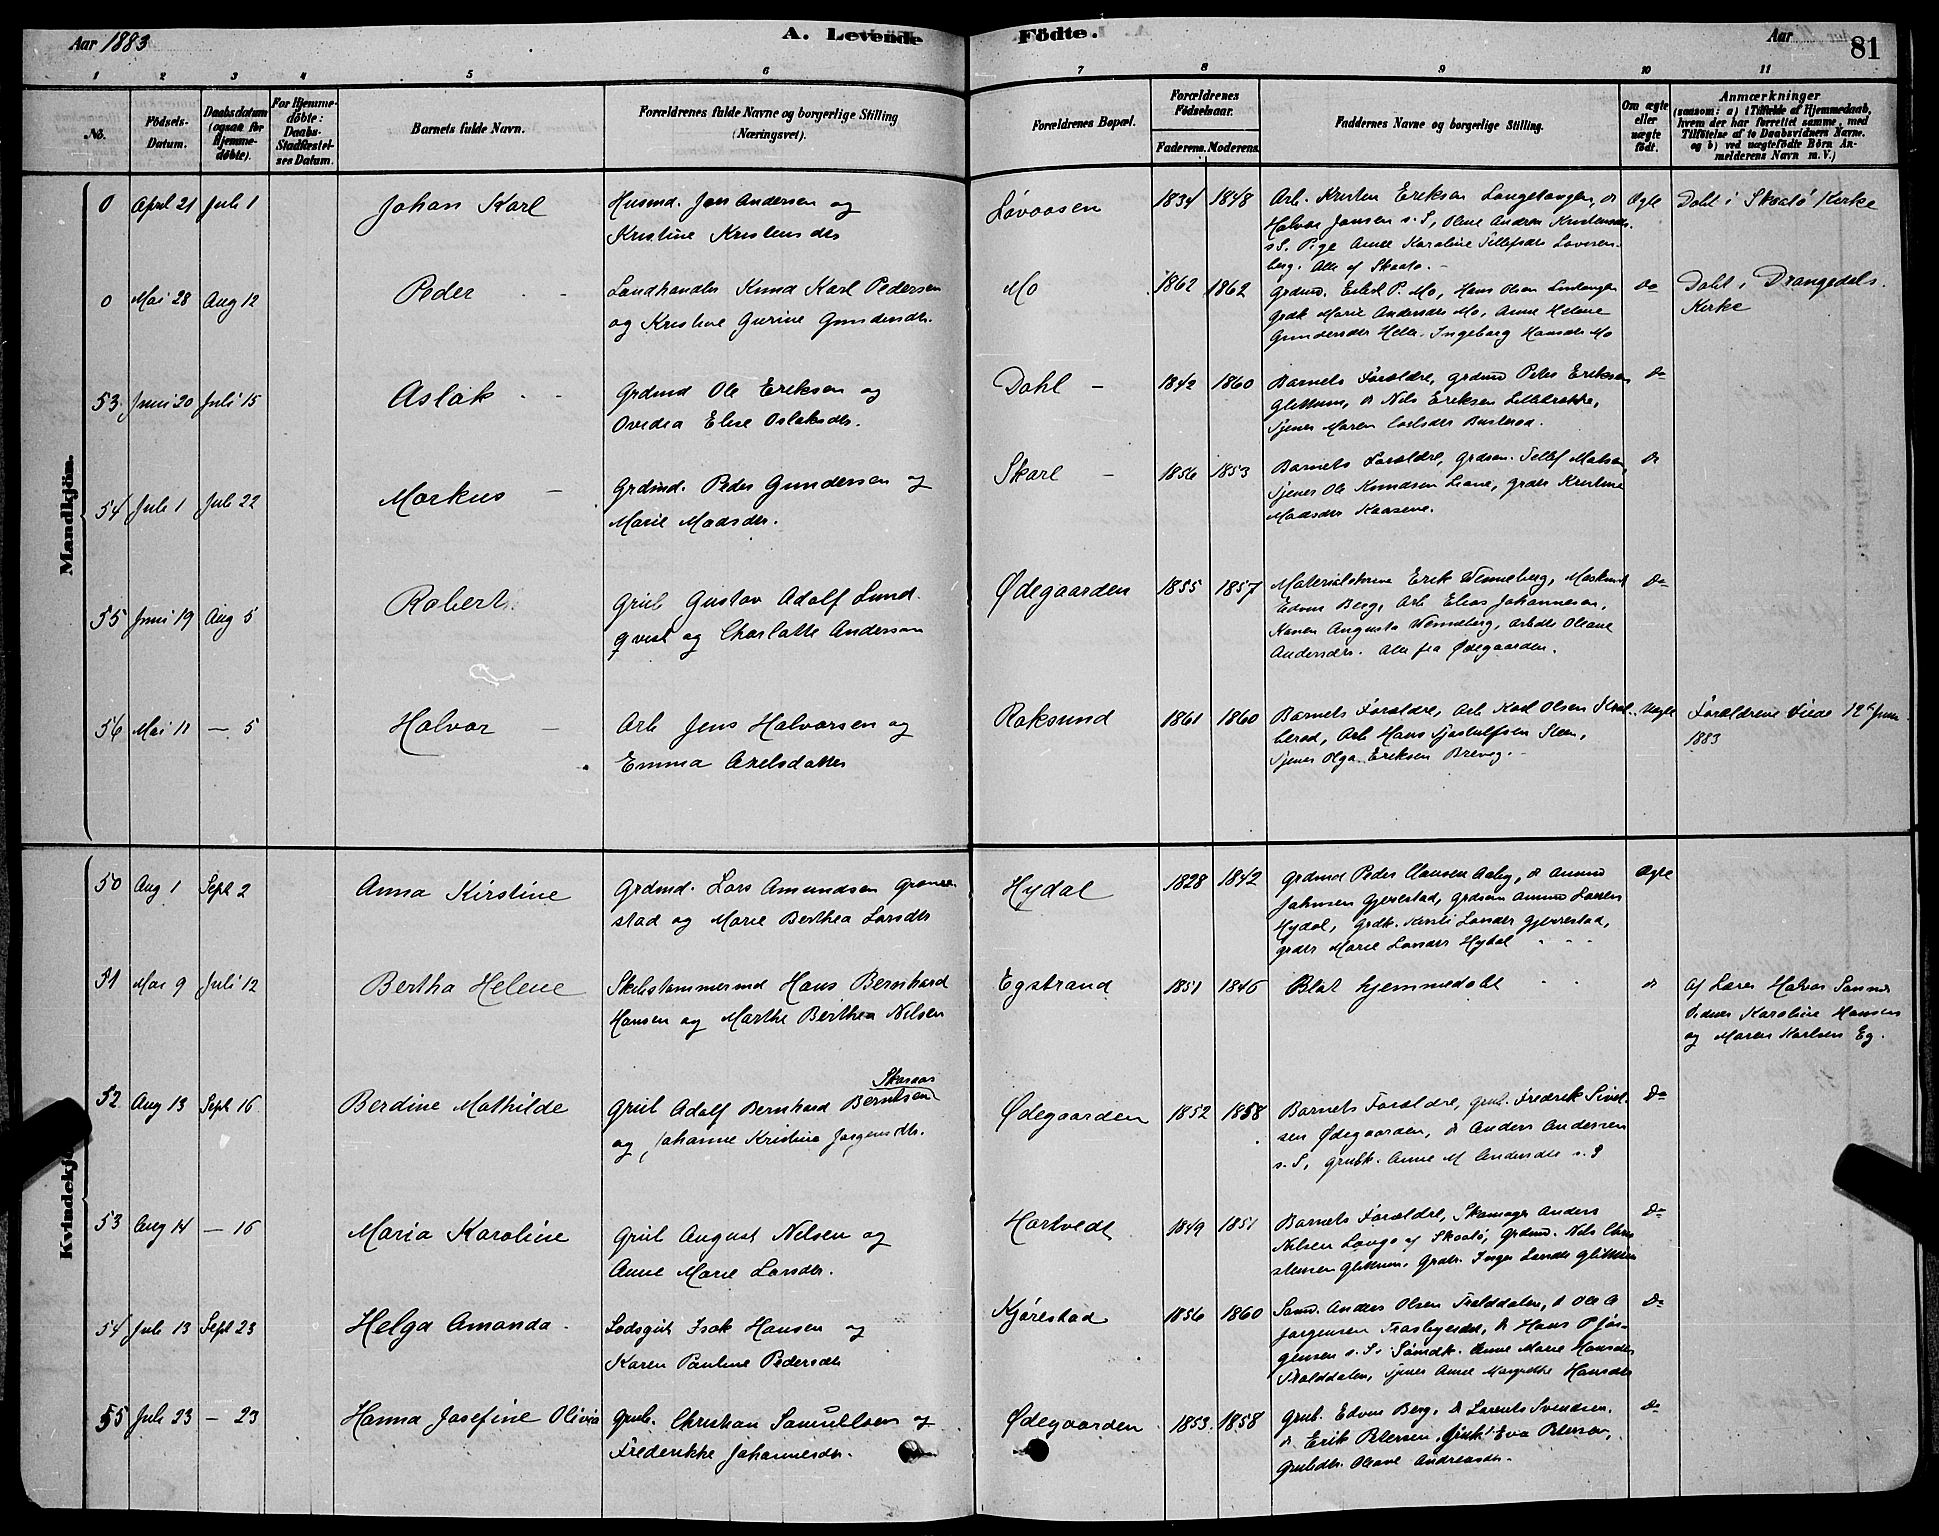 Aar 1883
A. Levende Födte.
Aar
81
1 2 3 4 5 6 7 8 9 10 11
No.
Födsels-Datum.
Daabsdatum (ogsaa for Hjemme-döbte).
For Hjemme-döbte: Daabs-Stadfæstel-ses Datum.
Barnets fulde Navn.
Forældrenes fulde Navne og borgerlige Stilling (Næringsvei).
Forældrenes Bopæl.
Forældrenes Födselsaar.
Faderens. Moderens.
Faddernes Navne og borgerlige Stilling.
Om ægte eller uægte födt.
Anmærkninger
(saasom: a) i Tilfælde af Hjemmedaab,
hvem der har forrettet samme, med
Tilföielse af to Daabsvidners Navne.
og b) ved uægtefödte Börn An-
melderens Navn m. V.)
Mandkjön.
0 April 21 Juli 1 Johan Karl
Husmd. Jens Andersen og
Kristine Kristensdtr
Løvaasen 1834 1848
Arb. Kristen Eriksen Langetangen, do
Halvor Jensen s. S,
s S. Pige Anne Karoline Tellefsdtr
berg. Alle af Skaatø.
Ægte
Døbt i Skaatø Kirke
0 Mai 28 Aug 12 Peder
Landhandler Knud Karl Pedersen
og Kristine Gurine Gundersdtr.
Mo 1862 1862
Grdmd. P. Mo, Hans Olsen
Grdk Marie Andersdtr Mo, Anne Helene
Gundersdtr Helle. Ingeborg Hansdtr Mo
do
Døbt i Drangedals
Kirke
53 Juni 20 Juli 15 Aslak
Grdmd Ole Eriksen og
Ovedia Elise Aslaksdtr.
Dahl 1842 1860
Barnets Forældre, Grdmd Peder Eriksen
do Nils Eriksen
Tjener Maren
do
54 Juli 1 Juli 22 Markus
Grdmd. Peder Gundersen og
Marie Madsdtr.
Skarl 1856 1853
Barnets Forældre, Grdsøn. Tellef Madsen
Tjener Ole Knudsen Liane, Grdtr Kristine
Madsdtr Kaasene.
do
55 Juni 19 Aug 5 Robert
Grub Gustav Adolf Lund-
qvist og Charlotte Anderson
Ødegaarden 1855 1857
Erik Wenneberg,
Edvin Berg, Arb Elias Johannesen,
Konen Augusta Wenneberg, Olave
Andersdtr. Alle fra Ødegaarden.
Do
56 Mai 11 — 5 Halvor
Arb Jens Halvorsen og
Emma Axelsdatter
Roksund 1861 1860
Barnets Forældre, Arb Karl Olsen
Arb Hans
Tjener Olga Eriksen Brevig.
Uægte
Forældrene viede 12te Juni
1883
Kvindekjön
50 Aug 1 Sept 2 Anna Kirstine
Grdmd. Lars Amundsen
stad og Marie Berthea Larsdtr
Hydal 1828 1842
Grdmd Peder Clausen Aaby, do Amund
Johnsen Gjerrestad, Grdsøn Amund Larsen
Hydal, Grdk. Larsdtr Gjerrestad,
Grdtr Marie Larsdtr Hydal
Ægte
51 Mai 9 Juli 12 Bertha Helene
Skibstømmermd Hans Bernhard
Hansen og Marthe Berthea Nilsen
Egstrand 1851 1846
Blot hjemmedøbt
do
Af Lærer Halvor
Vidner Karoline Hansen
og Maren Karlsen Eg.
52 Aug 13 Sept 16 Berdine Mathilde
Skaraas
Grub Adolf Bernhard Berntsen
og Johanne Kristine Jørgensdtr.
Ødegaarden 1852 1858
Barnets Forældre, Grub. Fredrik Sivert-
sen Ødegaarden, do Anders Andersen
s. S, Grubk. Anne M Andersdtr s. S
Do
53 Aug 14 — 16 Maria Karoline
Grub August Nilsen og
Anne Marie Larsdtr.
Hartvedt 1849 1851
Barnets Forældre, Skomager Anders
Nilsen Lange af Skaatø, Grdmd. Nils Chri-
stensen
Do
54 Juli 13 Sept 23 Helga Amanda
Lodsgut Isak Hansen og
Karen Pauline Pedersdtr
Kjørestad 1856 1860
Sømd. Anders Olsen Tralddalen, do Ole A
Jørgensen do Hans P Jør-
gensen s. S. Sømdk. Anne Marie Hansdtr
Tralddalen, Tjener Anne Margrethe Hansdtr
Do
55 Juli 23 — 23 Hanna Josefine Olivia
Grub. Christian Samuelsen og
Frederikke Johannesdtr.
Ødegaarden 1853 1858
Grub. Edvin Berg, do Laurits Svendsen,
do Erik Petersen, Grubk Eva Petersen,
Grubdtr. Olave Andreasdtr.
do